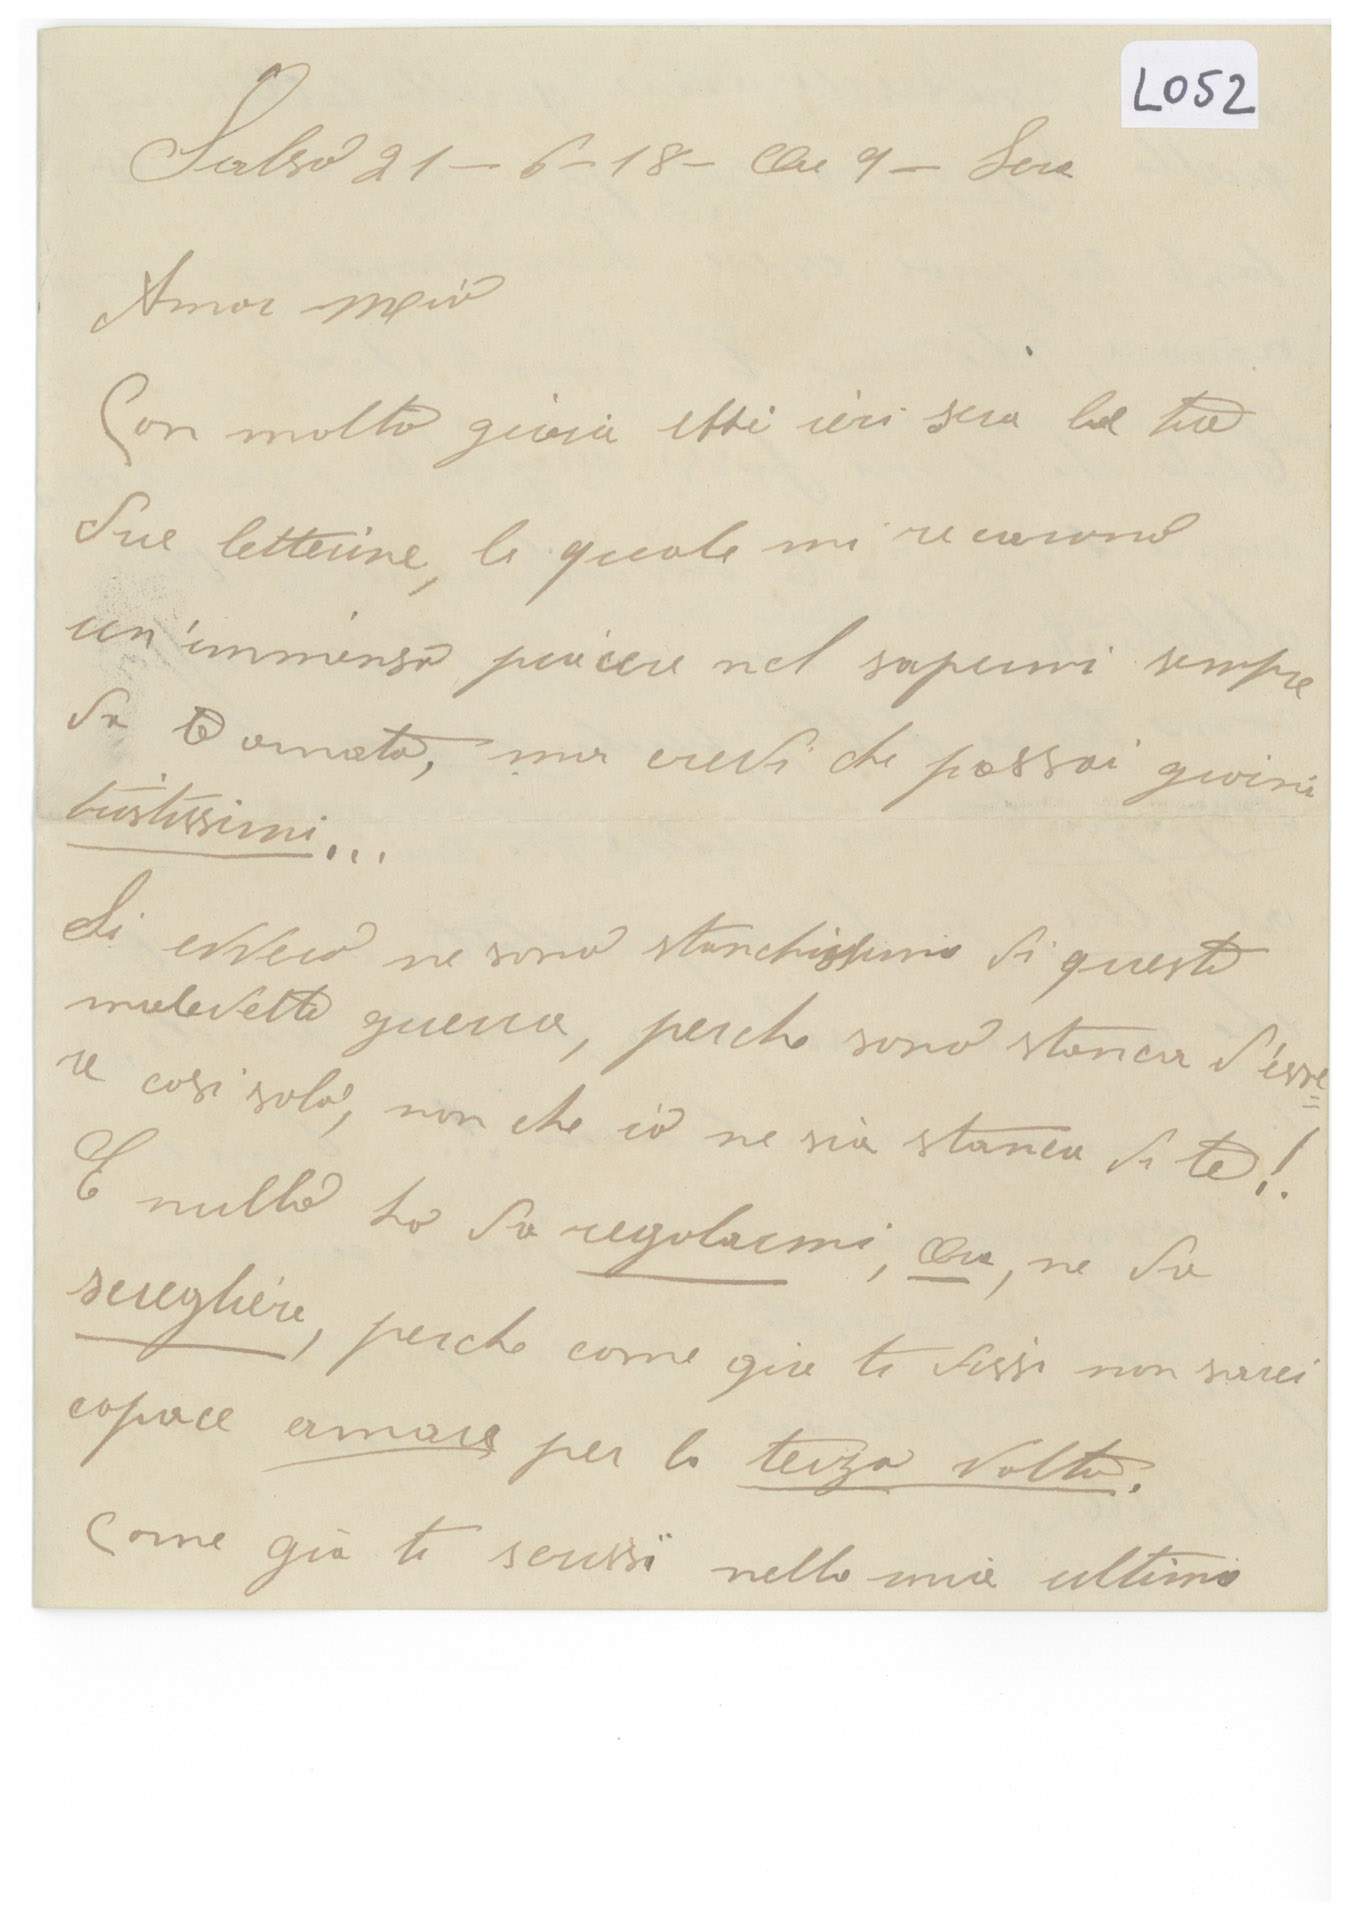 L052
Salso 21-6-18- Ore 9- Sera
Amor mio
Con molta gioia ebbi ieri sera le tue
due letterine, le quale mi recarono
un'immenso piacere nel sapermi sempre
da te amata, ma credi che passai giorni
tristissimi...
Si davvero ne sono stanchissima di questa
maledetta guerra, perche sono stanca d'esse=
re cosi sola, non che io ne sia stanca di te!.
E nulla ho da regolarmi, Ora, ne da
scregliere, perche come gia ti dissi non sarei
capace amare per la terza volta.
Come gia ti scrissi nella mia ultima